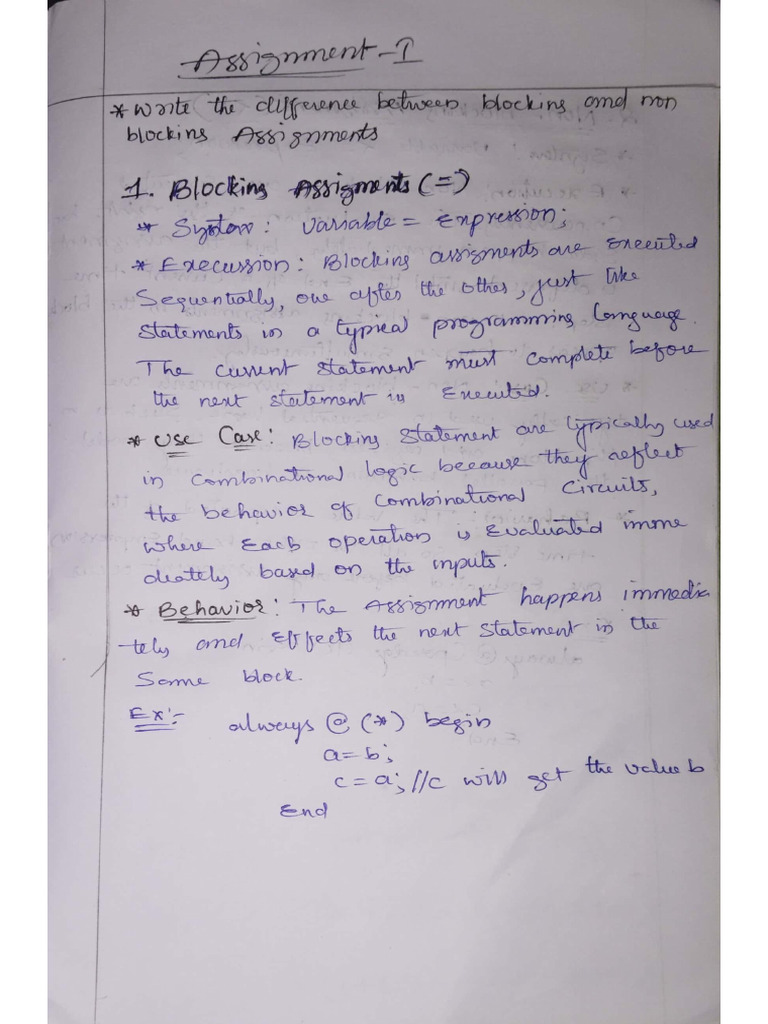 Assignment-I
* Write the difference between blocking and non
blocking Assignments
1. Blocking Assigments (=)
* Syntax: Variable = Expression;
* Execussion: Blocking assigments are executed
Sequentially, one after the other, just like
statements in a typical programming language.
The current statement must complete before
the next statement is Executed.
* Use Case: Blocking Statement are typically used
in combinational logic because they reflect
the behavior of combinational Circuits,
where Each operation is Evaluated imme
diately based on the inputs.
* Behavior: The Assignment happens immedia
tely and Effects the next Statement in the
Same block.
Ex:- always @ (*) begin
a = b;
c = a; //c will get the value b
End